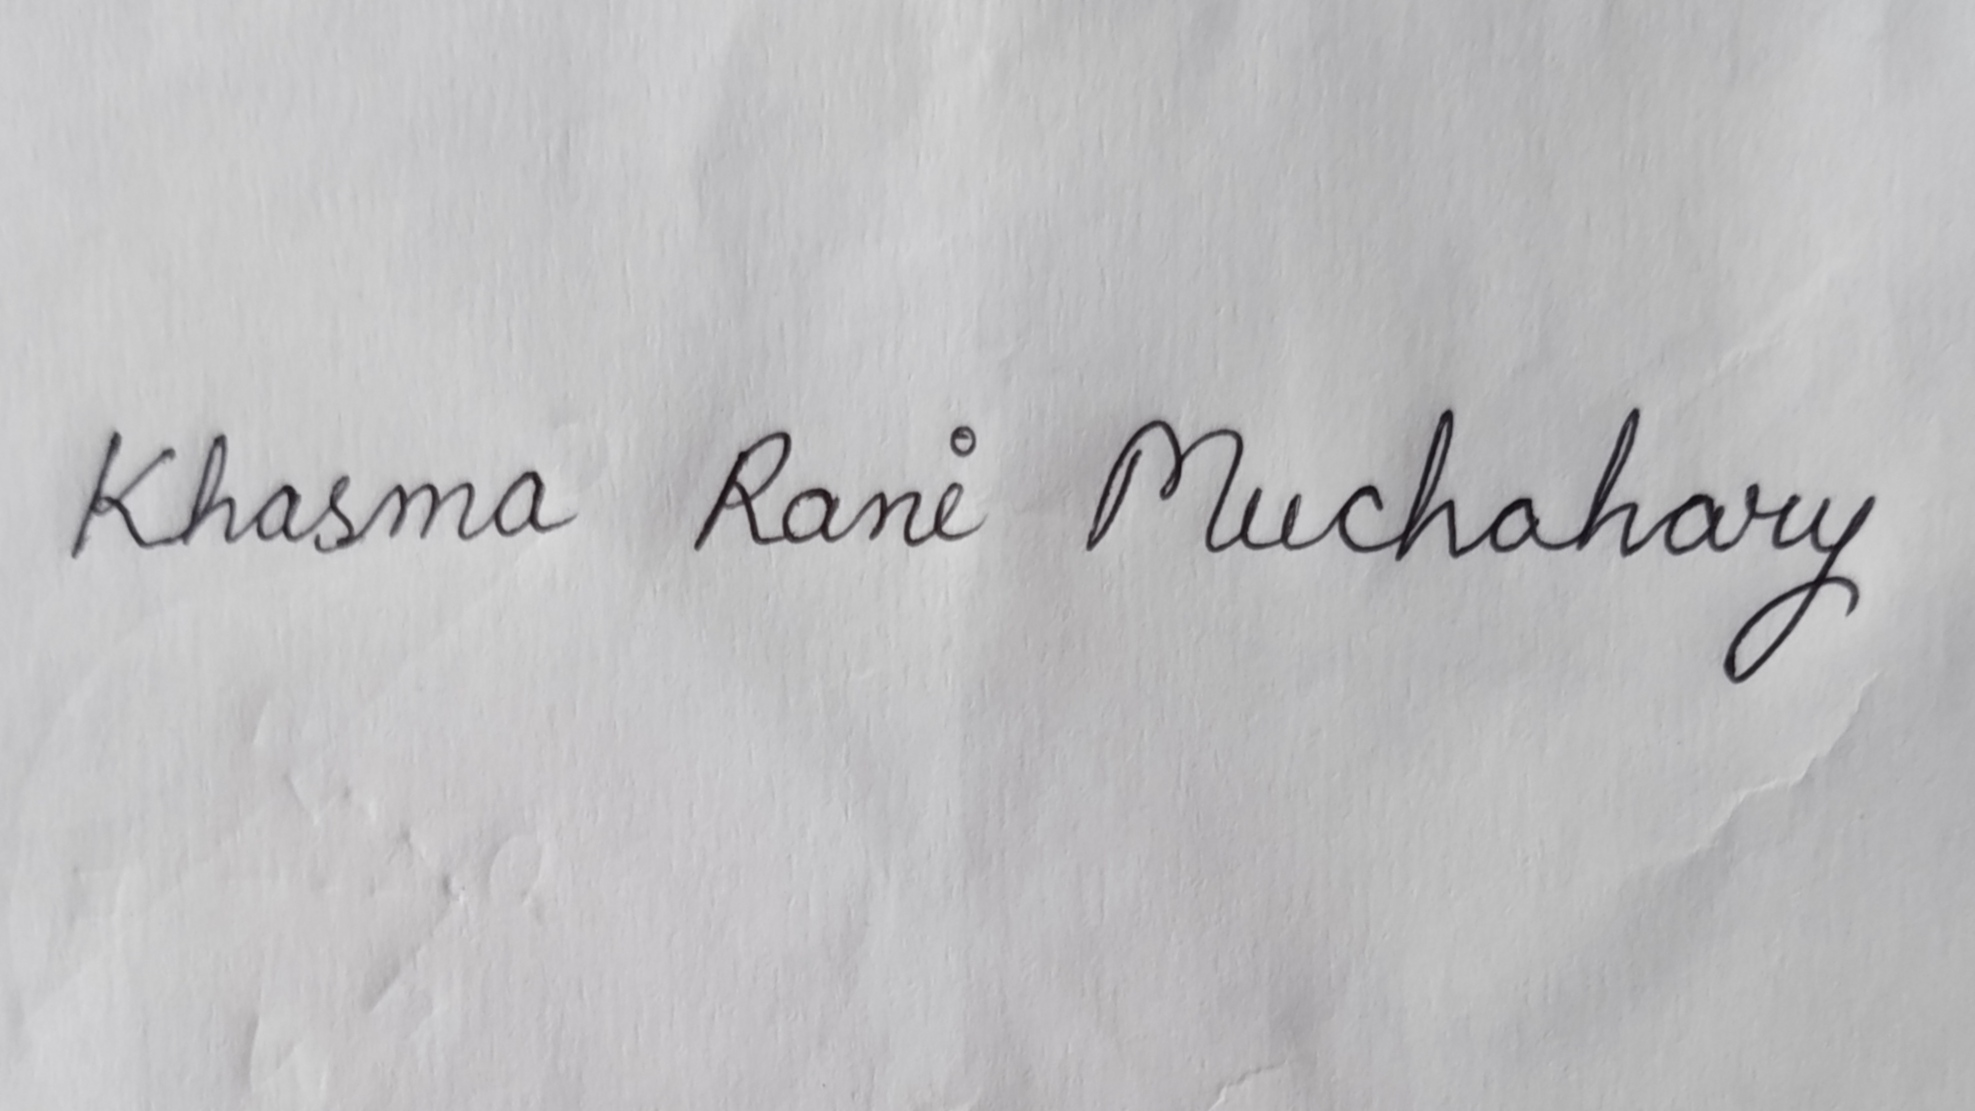 Khasma Rani Muchahary